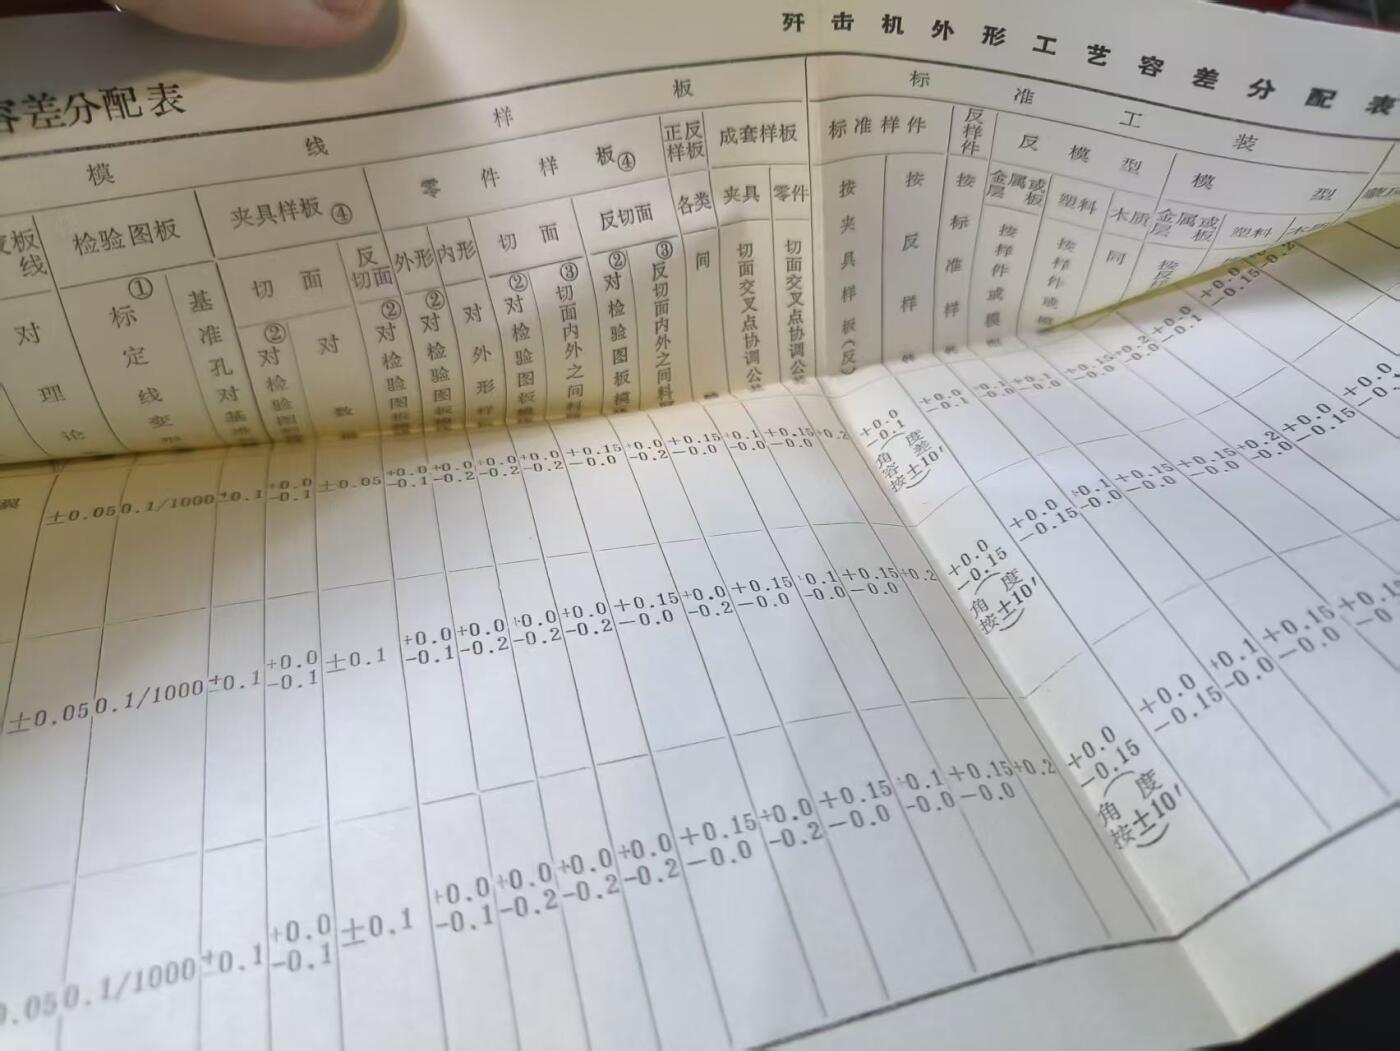 容差分配表
歼击机外形工艺容差分配表
模线样板
标准工装
检验图板
夹具样板④
零件样板④
正反样板
成套样板
标准样件
反样件
反模型
模型
切面
反切面
外形
内形
切面
反切面
各类
夹具
零件
金属或层板
塑料
木质
金属或层板
塑料
木质
对理论
①标定线变形
基准孔对基准
②对检验图
对数模
②对检验图板
②对检验图板
对外形样板
②对检验图板
③切面内外之间
②对检验图板
③反切面内外之间料
同
切面交叉点协调公
切面交叉点协调公
按夹具样板(反)
按反样
按标准样
按样件或模
按样件或模
同
按反样
翼 ±0.05 0.1/1000 ±0.1 +0.0 -0.1 ±0.05 +0.0 -0.1 +0.0 -0.2 +0.0 -0.2 +0.0 -0.2 +0.15 -0.0 +0.0 -0.2 +0.15 -0.0 +0.1 -0.0 +0.15 -0.0 +0.2 +0.0 -0.1 角度容差按±10′ +0.0 -0.1 +0.1 -0.0 +0.1 -0.0 +0.15 -0.0 +0.2 -0.0 +0.0 -0.1 +0.0 -0.15 +0.0 -0.2
±0.05 0.1/1000 ±0.1 +0.0 -0.1 ±0.1 +0.0 -0.1 +0.0 -0.2 +0.0 -0.2 +0.0 -0.2 +0.15 -0.0 +0.0 -0.2 +0.15 -0.0 +0.1 -0.0 +0.15 -0.0 +0.2 +0.0 -0.15 (角度按±10′) +0.0 -0.15 +0.1 -0.0 +0.15 -0.0 +0.15 -0.0 +0.2 -0.0 +0.0 -0.15 +0.0
0.05 0.1/1000 ±0.1 +0.0 -0.1 ±0.1 +0.0 -0.1 +0.0 -0.2 +0.0 -0.2 +0.0 -0.2 +0.15 -0.0 +0.0 -0.2 +0.15 -0.0 +0.1 -0.0 +0.15 -0.0 +0.2 +0.0 -0.15 (角度按±10′) +0.0 -0.15 +0.1 -0.0 +0.15 -0.0 +0.15